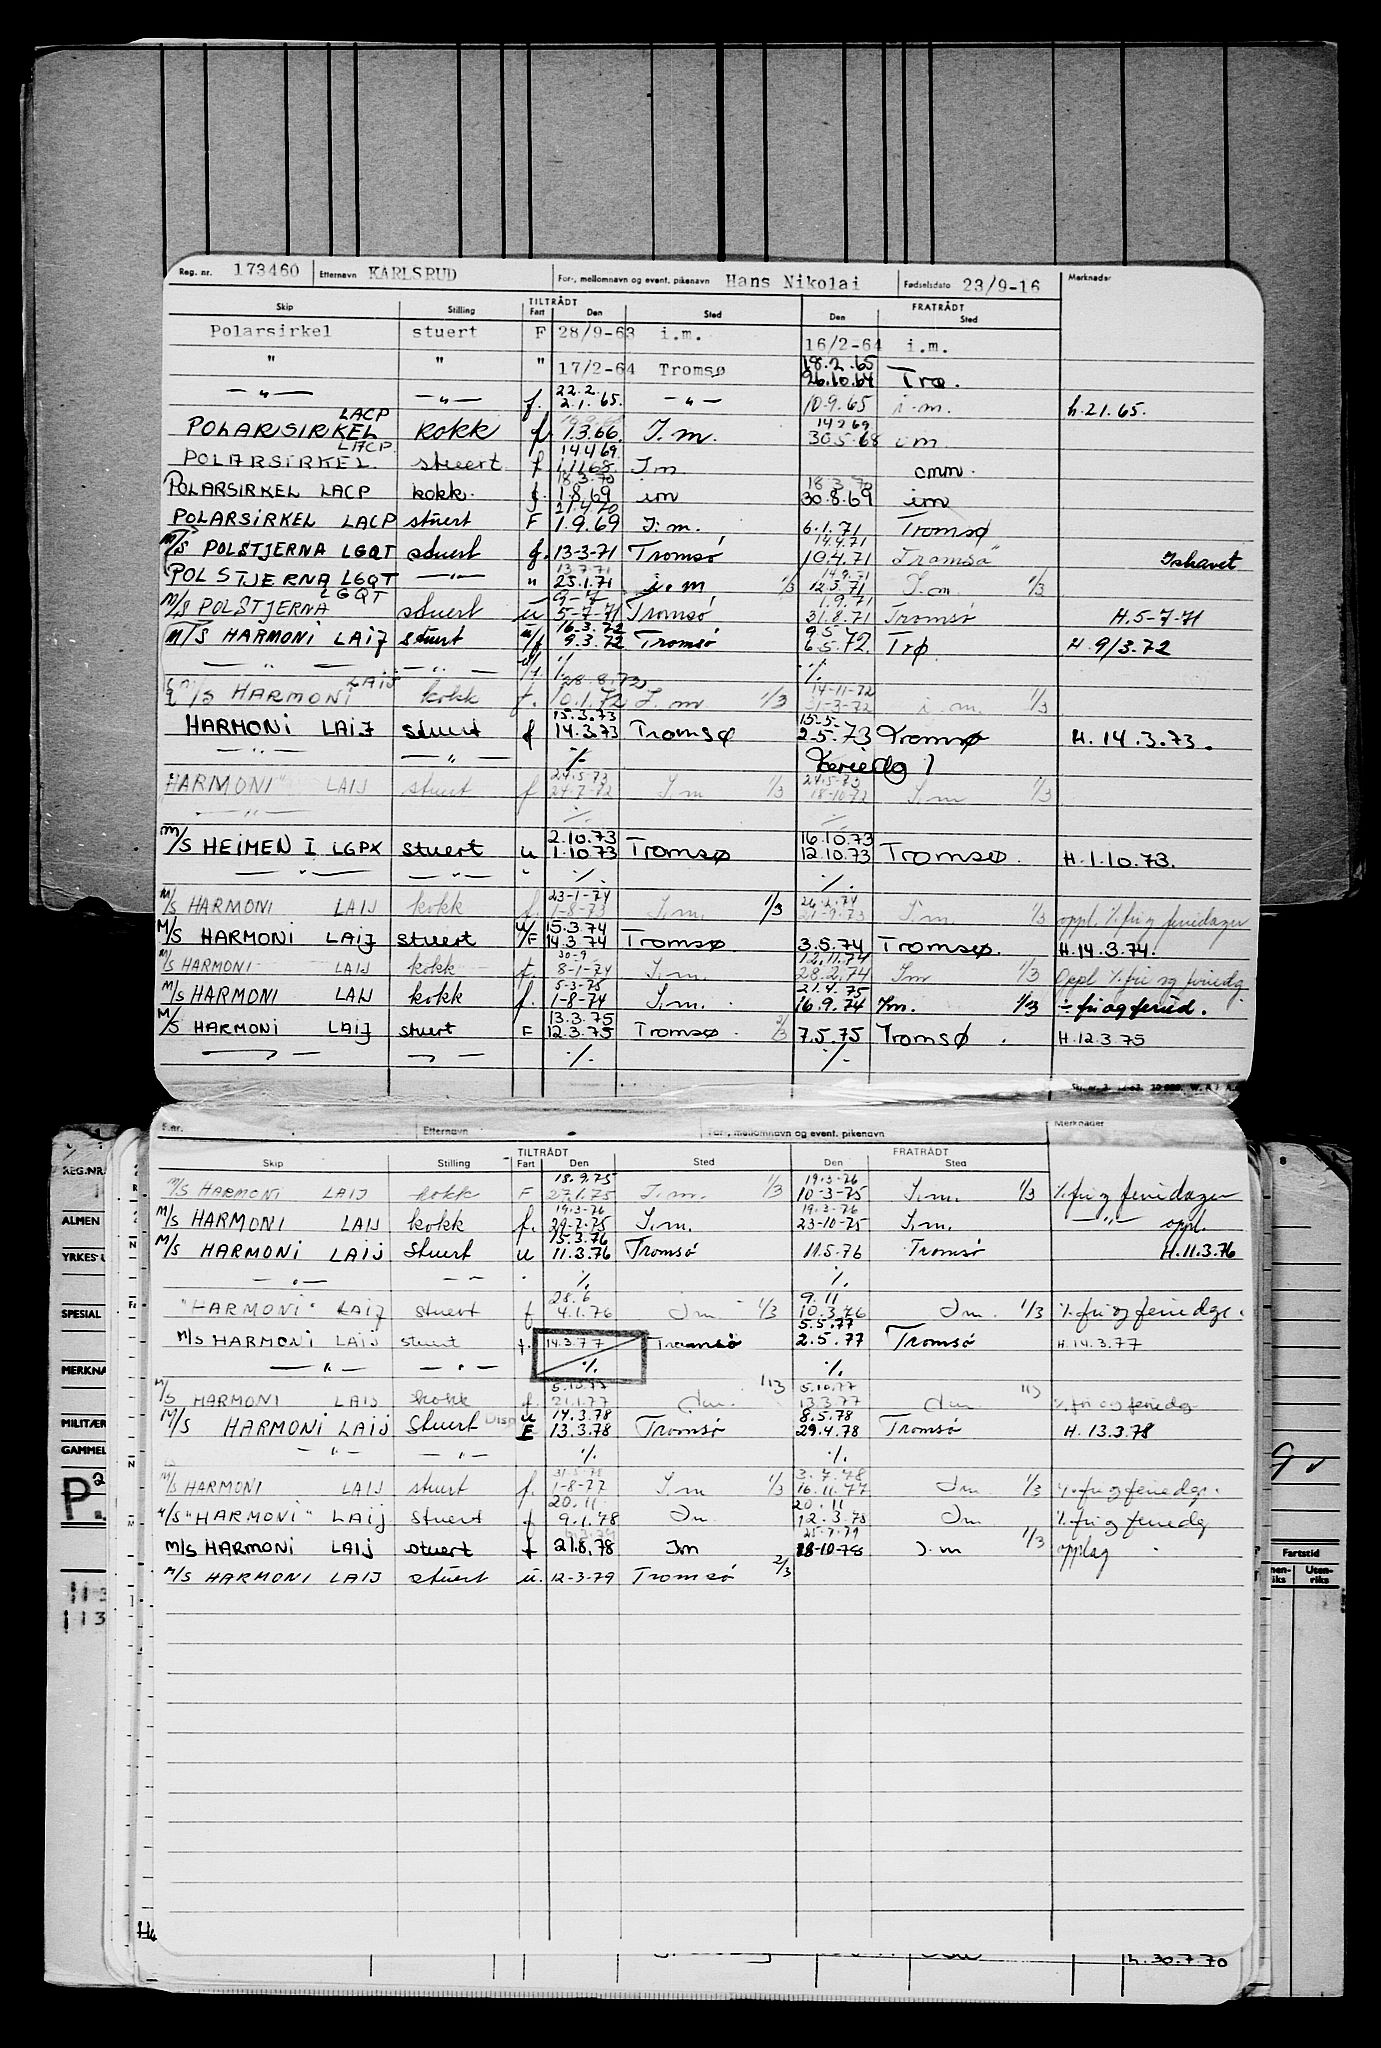 Reg. nr. 173460 Etternavn KARLSRUD For-, mellomnavn og event. pikenavn Hans Nikolai Fødselsdato 23/9-16 Merknader
TILTRÅDT FRATRÅDT
Skip Stilling Fart Den Sted Den Sted
Polarsirkel stuert F 28/9-63 i.m. 16/2-64 i.m.
18.2.65
" " " 17/2-64 Tromsø 26.10.64 Trø.
22.2.
—"— —"— f. 2.1.65. —"— 10.9.65 i.m. h.21.65.
LACP
POLARSIRKEL kokk f. 1.3.66. I.m. 30.5.68 im
LACP 14.4.69.
POLARSIRKEL stuert. f 1.11.68. Im omm.
18.3.70 18 3 70
POLARSIRKEL LACP kokk. f. 1.8.69 im 30.8.69 im
21.4.70
POLARSIRKEL LACP stuert F 1.9.69 I.m. 6.1.71 Tromsø
14.4.71
M/S POLSTJERNA LGQT stuert f. 13-3-71 Tromsø 10.4.71 Tromsø Ishavet
13.7.71 14.9.71
POLSTJERNA LGQT —"— " 23.1.71 i.m 1/3 12.3.71 I.m. 1/3
LGQT 9-7- 1.9.71
M/S POLSTJERNA stuert u 5-7-71 Tromsø 31.8.71 Tromsø H.5-7-71
16.3.72 9.5
M/S HARMONI LAIJ stuert u/f 9.3.72 Tromsø 6.5.72. Trø. H 9/3.72
— " — —"— ./. ./.
LAIJ 28.8.73 14-11-72
M/S HARMONI kokk f. 10.1.72 I.m 1/3 31-3-72 i.m. 1/3
15.3.73 15-5-
HARMONI LAIJ stuert f 14.3.73 Tromsø 2.5.73 Tromsø H. 14.3.73.
—"— —"— ./.
24.5.73 24.5.73
"HARMONI" LAIJ stuert f 24.7.72 I.m 1/3 18-10-72 I.m 1/3
—"— ./. ./.
2.10.73 16.10.73
M/S HEIMEN I LGPX stuert u 1.10.73 Tromsø 12.10.73 Tromsø. H.1.10.73.
— " — —"— " ./. ./.
23-1-74 26.2.74
M/S HARMONI LAIJ kokk f. 1-8-73 I.m. 1/3 21-9.73 I.m. 1/3 oppl. ./. fri og feriedager
15.3.74
M/S HARMONI LAIJ stuert u/F 14.3.74 Tromsø 3.5.74 Tromsø. H.14.3.74.
30-9 12.11.74
M/S HARMONI LAIJ kokk f. 8-1-74 I.m. 28.2.74 Im 1/3 Oppl ./. fri og feriedg.
5-3-75 21.4.75
M/S HARMONI LAIJ kokk f. 1-8-74 I.m. 16.9.74 Im. 1/3 ÷ fri og feried.
13.3.75
M/S HARMONI LAIJ stuert F 12.3.75 Tromsø. 2/3 7.5.75 Tromsø. H.12.3.75
—"— —"— ./. ./.
Etternavn For-, mellomnavn og event. pikenavn Merknader
TILTRÅDT FRATRÅDT
Skip Stilling Fart Den Sted Den Sted
18.9.75 19.3-76
M/S HARMONI LAIJ kokk F 27.1.75 I.m. 1/3 10-3-75 I.m. 1/3 ./. fri og feriedager
19.3-76 19.3-76
M/S HARMONI LAIJ kokk f. 29-7-75 I.m. 23-10-75 I.m. —"— oppl.
15.3.76
M/S HARMONI LAIJ stuert u 11.3.76 Tromsø 11.5.76 Tromsø H.11.3.76
—"— —"— ./. ./.
28.6 9.11
"HARMONI" LAIJ stuert f 4.1.76 Im 1/3 10.3.76 Im. 1/3 ./. fri og feriedge.
5.5.77
M/S HARMONI LAIJ stuert f. 14.3.77 Tromsø 2.5.77 Tromsø H.14.3.77
—"— —"— ./. ./.
5.10.77 5.10.77
M/S HARMONI LAIJ kokk f 21.1.77 Im. 1/3 13.3.77 Im 1/3 ./. fri og feriedg
14.3.78 8.5.78
M/S HARMONI LAIJ Stuert Disp u F 13.3.78 Tromsø 29.4.78 Tromsø H. 13.3.78
—"— —"— ./. ./.
3.7.78
M/S HARMONI LAIJ stuert f. 1-8-77 I.m 1/3 16.11.77 Im 1/3 ./. fri og feriedgr.
20.11 20.11
M/S "HARMONI" LAIJ stuert f 9.1.78 Im. 12.3.78 Im ./. fri og feriedg
25-7-79
M/S HARMONI LAIJ stuert f 21.8.78 Im 18-10-78 I.m 1/3 opplag
M/S HARMONI LAIJ stuert u. 12-3-79 Tromsø 2/3
REG.NR.
ALMEN
YRKES
SPESIAL
MERKNA
MILITÆR
GAMMEL
P.
Fartstid
Uten-riks
h.30.7.70